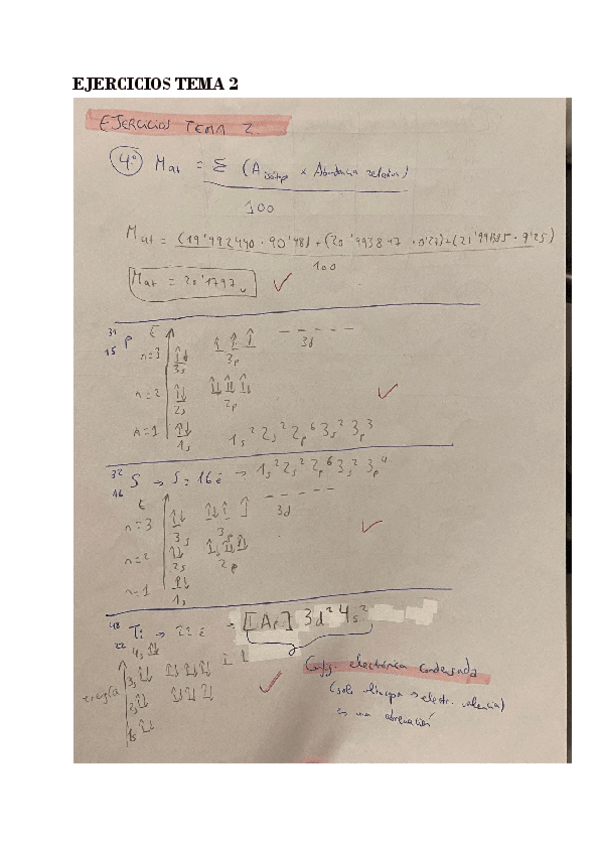 EJERCICIOS TEMA 2
EJERCICIOS TEMA 2
4.º Mat = Σ (A isótopo x Abundancia relativa)
100
Mat = (19'992440 · 90'48) + (20'993847 · 0'27) + (21'991385 · 9'25)
100
Mat = 20'1797
31
15 P E
n=3 3s 3p 3d
n=2 2s 2p
n=1 1s 1s² 2s² 2p⁶ 3s² 3p³
32
16 S → S: 16 e⁻ → 1s² 2s² 2p⁶ 3s² 3p⁴
E
n=3 3s 3p 3d
n=2 2s 2p
n=1 1s
48
22 Ti → 22 e⁻ → [Ar] 3d² 4s²
4s
energía 3s
2s
1s
Config. electrónica condensada
(solo electr. valencia)
es una abreviación